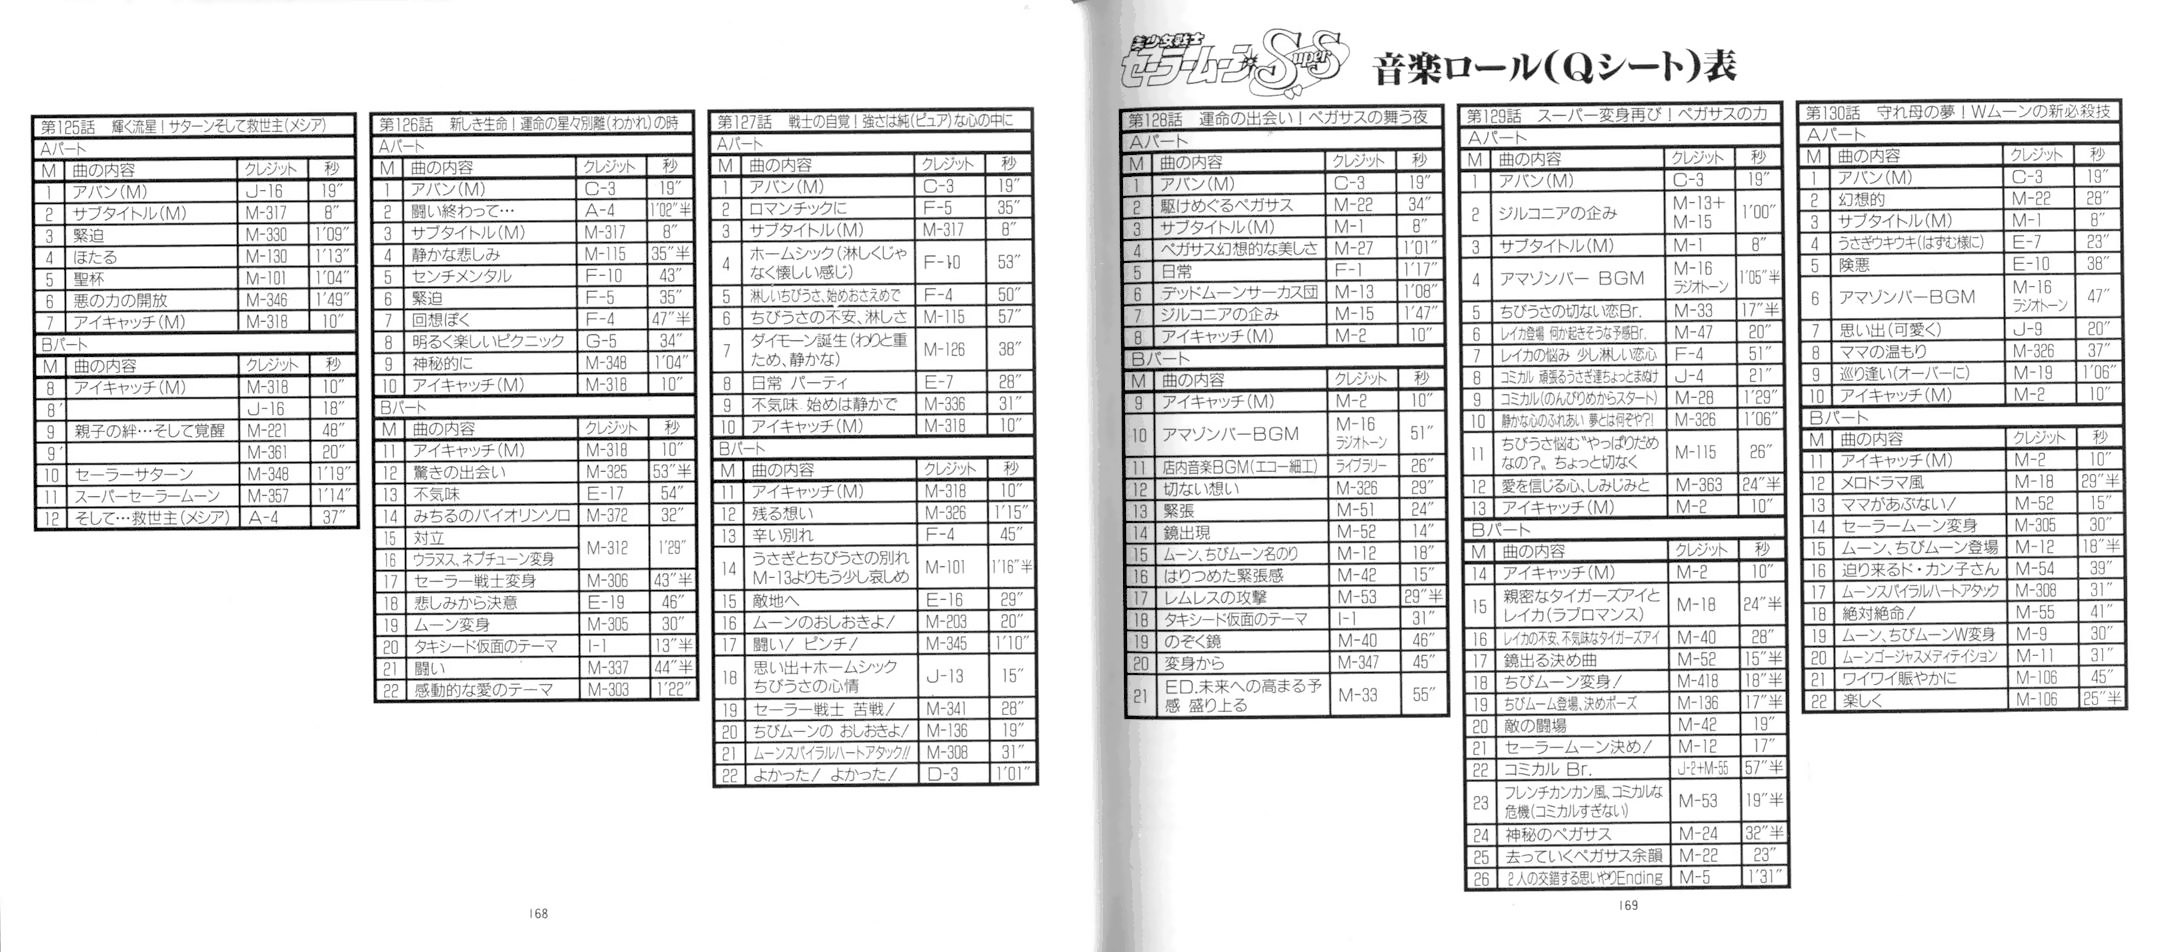 第125話 輝く流星！サターンそして救世主(メシア)
Aパート
M 曲の内容 クレジット 秒
1 アバン(M) J-16 19″
2 サブタイトル(M) M-317 8″
3 緊迫 M-330 1′09″
4 ほたる M-130 1′13″
5 聖杯 M-101 1′04″
6 悪の力の開放 M-346 1′49″
7 アイキャッチ(M) M-318 10″
Bパート
M 曲の内容 クレジット 秒
8 アイキャッチ(M) M-318 10″
8′ J-16 18″
9 親子の絆…そして覚醒 M-221 48″
9′ M-361 20″
10 セーラーサターン M-348 1′19″
11 スーパーセーラームーン M-357 1′14″
12 そして…救世主(メシア) A-4 37″
第126話 新しき生命！運命の星々別離(わかれ)の時
Aパート
M 曲の内容 クレジット 秒
1 アバン(M) C-3 19″
2 闘い終わって… A-4 1′02″半
3 サブタイトル(M) M-317 8″
4 静かな悲しみ M-115 35″半
5 センチメンタル F-10 43″
6 緊迫 F-5 35″
7 回想ぽく F-4 47″半
8 明るく楽しいピクニック G-5 34″
9 神秘的に M-348 1′04″
10 アイキャッチ(M) M-318 10″
Bパート
M 曲の内容 クレジット 秒
11 アイキャッチ(M) M-318 10″
12 驚きの出会い M-325 53″半
13 不気味 E-17 54″
14 みちるのバイオリンソロ M-372 32″
15 対立
16 ウラヌス、ネプチューン変身 M-312 1′29″
17 セーラー戦士変身 M-306 43″半
18 悲しみから決意 E-19 46″
19 ムーン変身 M-305 30″
20 タキシード仮面のテーマ I-1 13″半
21 闘い M-337 44″半
22 感動的な愛のテーマ M-303 1′22″
第127話 戦士の自覚！強さは純(ピュア)な心の中に
Aパート
M 曲の内容 クレジット 秒
1 アバン(M) C-3 19″
2 ロマンチックに F-5 35″
3 サブタイトル(M) M-317 8″
4 ホームシック(淋しくじゃ
なく懐しい感じ) F-10 53″
5 淋しいちびうさ、始めおさえめで F-4 50″
6 ちびうさの不安、淋しさ M-115 57″
7 ダイモーン誕生(わりと重
ため、静かな) M-126 38″
8 日常 パーティ E-7 28″
9 不気味 始めは静かで M-336 31″
10 アイキャッチ(M) M-318 10″
Bパート
M 曲の内容 クレジット 秒
11 アイキャッチ(M) M-318 10″
12 残る想い M-326 1′15″
13 辛い別れ F-4 45″
14 うさぎとちびうさの別れ
M-13よりもう少し哀しめ M-101 1′16″半
15 敵地へ E-16 29″
16 ムーンのおしおきよ！ M-203 20″
17 闘い！ピンチ！ M-345 1′10″
18 思い出＋ホームシック
ちびうさの心情 J-13 15″
19 セーラー戦士 苦戦！ M-341 28″
20 ちびムーンの おしおきよ！ M-136 19″
21 ムーンスパイラルハートアタック!! M-308 31″
22 よかった！よかった！ D-3 1′01″
168
美少女戦士
セーラームーンSuperS
音楽ロール(Qシート)表
第128話 運命の出会い！ペガサスの舞う夜
Aパート
M 曲の内容 クレジット 秒
1 アバン(M) C-3 19″
2 駆けめぐるペガサス M-22 34″
3 サブタイトル(M) M-1 8″
4 ペガサス幻想的な美しさ M-27 1′01″
5 日常 F-1 1′17″
6 デッドムーンサーカス団 M-13 1′08″
7 ジルコニアの企み M-15 1′47″
8 アイキャッチ(M) M-2 10″
Bパート
M 曲の内容 クレジット 秒
9 アイキャッチ(M) M-2 10″
10 アマゾンバーBGM M-16
ラジオトーン 51″
11 店内音楽BGM(エコー細工) ライブラリー 26″
12 切ない想い M-326 29″
13 緊張 M-51 24″
14 鏡出現 M-52 14″
15 ムーン、ちびムーン名のり M-12 18″
16 はりつめた緊張感 M-42 15″
17 レムレスの攻撃 M-53 29″半
18 タキシード仮面のテーマ I-1 31″
19 のぞく鏡 M-40 46″
20 変身から M-347 45″
21 ED.未来への高まる予
感 盛り上る M-33 55″
第129話 スーパー変身再び！ペガサスの力
Aパート
M 曲の内容 クレジット 秒
1 アバン(M) C-3 19″
2 ジルコニアの企み M-13＋
M-15 1′00″
3 サブタイトル(M) M-1 8″
4 アマゾンバー BGM M-16
ラジオトーン 1′05″半
5 ちびうさの切ない恋Br. M-33 17″半
6 レイカ登場 何か起きそうな予感Br. M-47 20″
7 レイカの悩み 少し淋しい恋心 F-4 51″
8 コミカル 頑張るうさぎ達ちょっとまぬけ J-4 21″
9 コミカル(のんびりめからスタート) M-28 1′29″
10 静かな心のふれあい 夢とは何ぞや?! M-326 1′06″
11 ちびうさ悩む〝やっぱりだめ
なの?〟ちょっと切なく M-115 26″
12 愛を信じる心、しみじみと M-363 24″半
13 アイキャッチ(M) M-2 10″
Bパート
M 曲の内容 クレジット 秒
14 アイキャッチ(M) M-2 10″
15 親密なタイガーズアイと
レイカ(ラブロマンス) M-18 24″半
16 レイカの不安、不気味なタイガーズアイ M-40 28″
17 鏡出る決め曲 M-52 15″半
18 ちびムーン変身！ M-418 18″半
19 ちびムーム登場、決めポーズ M-136 17″半
20 敵の闘場 M-42 19″
21 セーラームーン決め！ M-12 17″
22 コミカル Br. J-2＋M-55 57″半
23 フレンチカンカン風、コミカルな
危機(コミカルすぎない) M-53 19″半
24 神秘のペガサス M-24 32″半
25 去っていくペガサス余韻 M-22 23″
26 2人の交錯する思いやりEnding M-5 1′31″
第130話 守れ母の夢！Wムーンの新必殺技
Aパート
M 曲の内容 クレジット 秒
1 アバン(M) C-3 19″
2 幻想的 M-22 28″
3 サブタイトル(M) M-1 8″
4 うさぎウキウキ(はずむ様に) E-7 23″
5 険悪 E-10 38″
6 アマゾンバーBGM M-16
ラジオトーン 47″
7 思い出(可愛く) J-9 20″
8 ママの温もり M-326 37″
9 巡り逢い(オーバーに) M-19 1′06″
10 アイキャッチ(M) M-2 10″
Bパート
M 曲の内容 クレジット 秒
11 アイキャッチ(M) M-2 10″
12 メロドラマ風 M-18 29″半
13 ママがあぶない！ M-52 15″
14 セーラームーン変身 M-305 30″
15 ムーン、ちびムーン登場 M-12 18″半
16 迫り来るド・カン子さん M-54 39″
17 ムーンスパイラルハートアタック M-308 31″
18 絶対絶命！ M-55 41″
19 ムーン、ちびムーンW変身 M-9 30″
20 ムーンゴージャスメディテイション M-11 31″
21 ワイワイ賑やかに M-106 45″
22 楽しく M-106 25″半
169